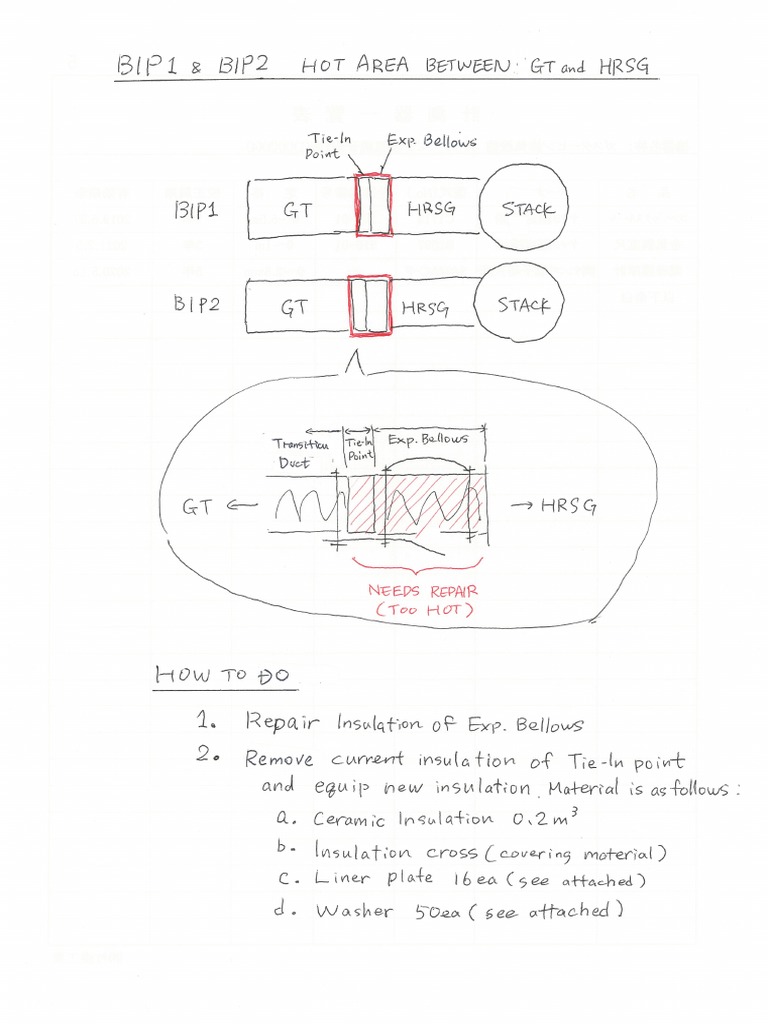 BIP1 & BIP2 HOT AREA BETWEEN: GT and HRSG
Tie-In
Point
Exp. Bellows
BIP1
GT
HRSG
STACK
BIP2
GT
HRSG
STACK
Transition
Duct
Tie-In
Point
Exp. Bellows
GT
HRSG
NEEDS REPAIR
(TOO HOT)
HOW TO DO
1. Repair Insulation of Exp. Bellows
2. Remove current insulation of Tie-In point
and equip new insulation. Material is as follows:
a. Ceramic Insulation 0.2m³
b. Insulation cross (covering material)
c. Liner plate 16ea (see attached)
d. Washer 50ea (see attached)